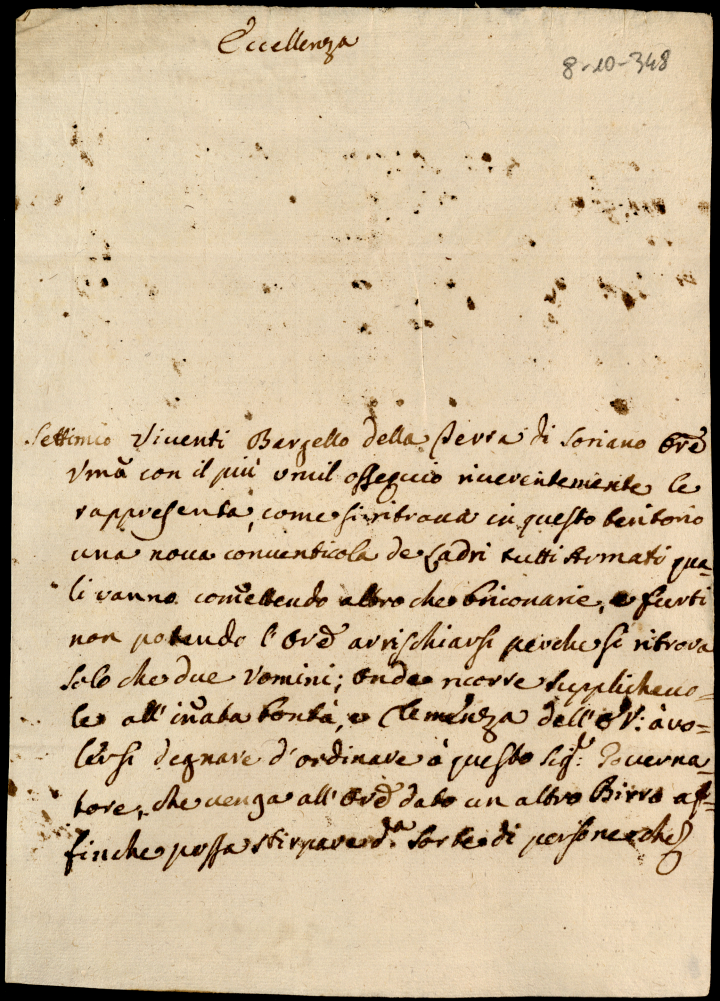 Eccellenza
8-10-348
Settimio Viventi Bargello della Terra di Soriano Ore
Vmã con il più vmil ossequio riuerentemente le
rappresenta, come si ritroua in questo teritorio
una noua conuenticola de Ladri tutti Armati qua-
li vanno com̃ettendo altro che briconarie, e furti
non potendo l'Ore arrischiarsi perche si ritrova
solo che due Vomini; onde ricorre supplicheuo-
le all'in̄ata bontà, e Clemenza dell'E. V: à vo-
lersi degnare d'ordinare à questo Sigr: Gouerna-
tore, che uenga all'Ore dato un altro Birro af-
finche possa stirpare da. sorte di persone che